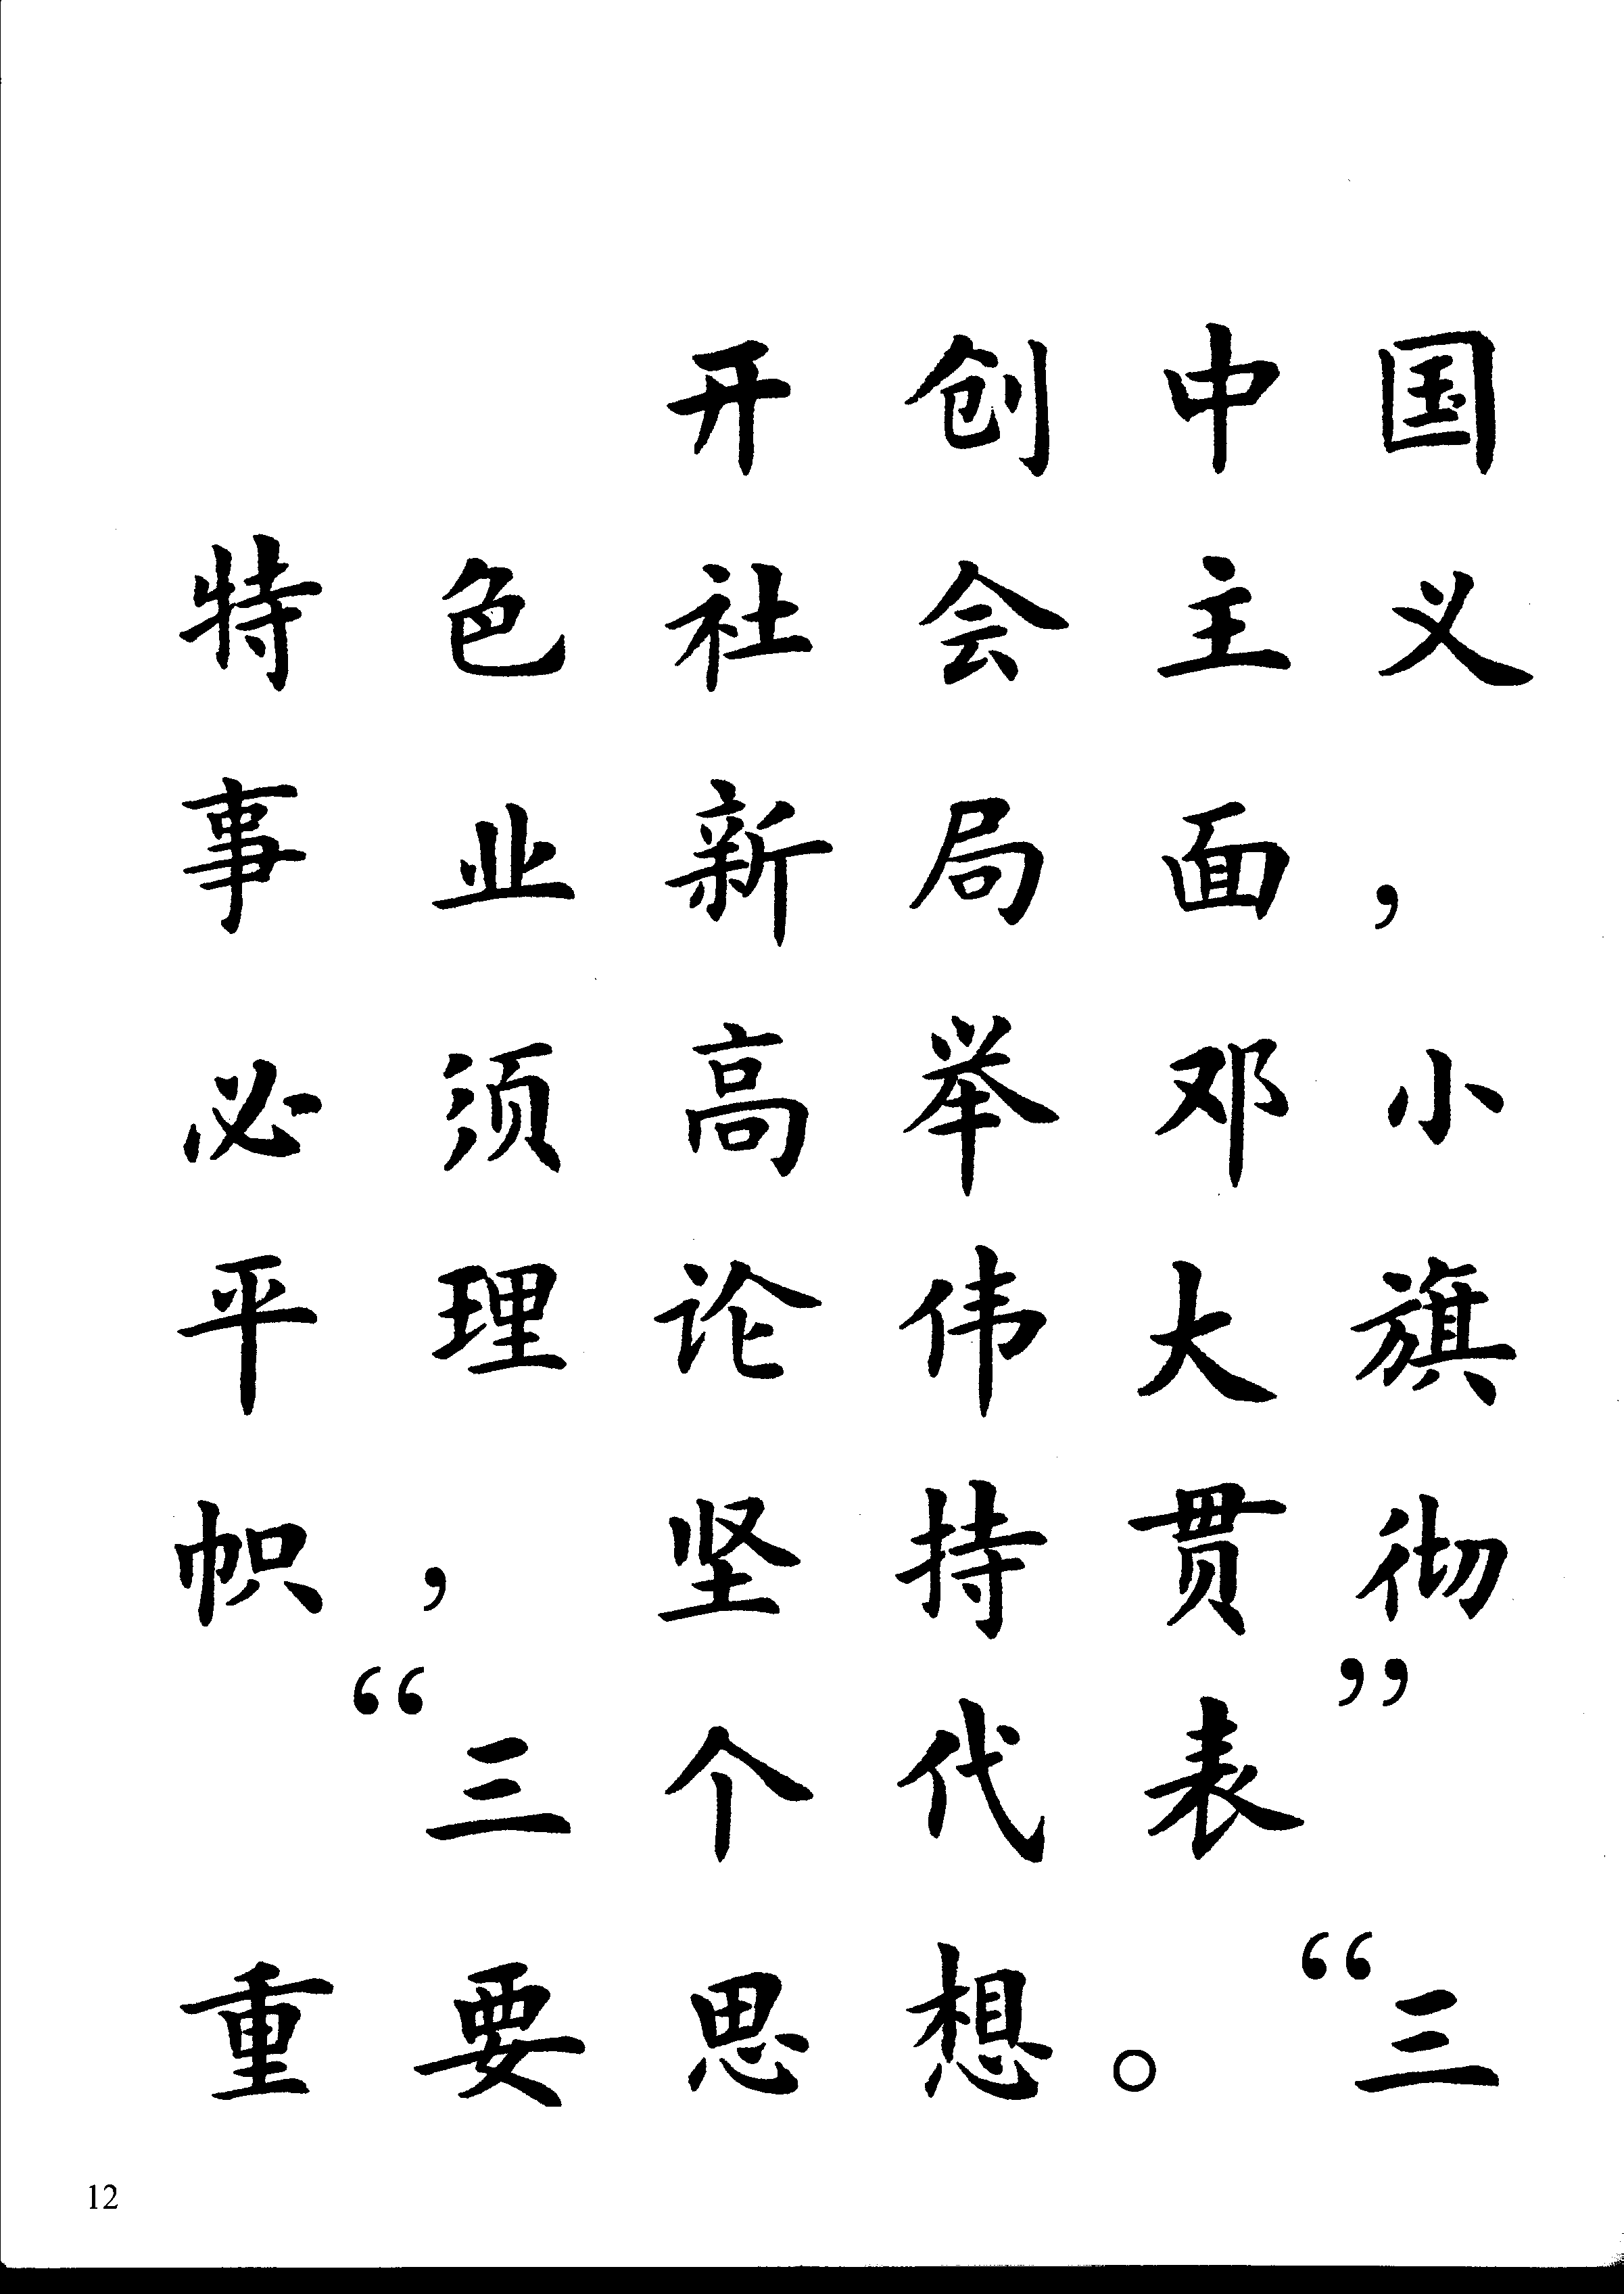 开创中国
特色社会主义
事业新局面，
必须高举邓小
平理论伟大旗
帜，坚持贯彻
“三个代表”
重要思想。“三
12